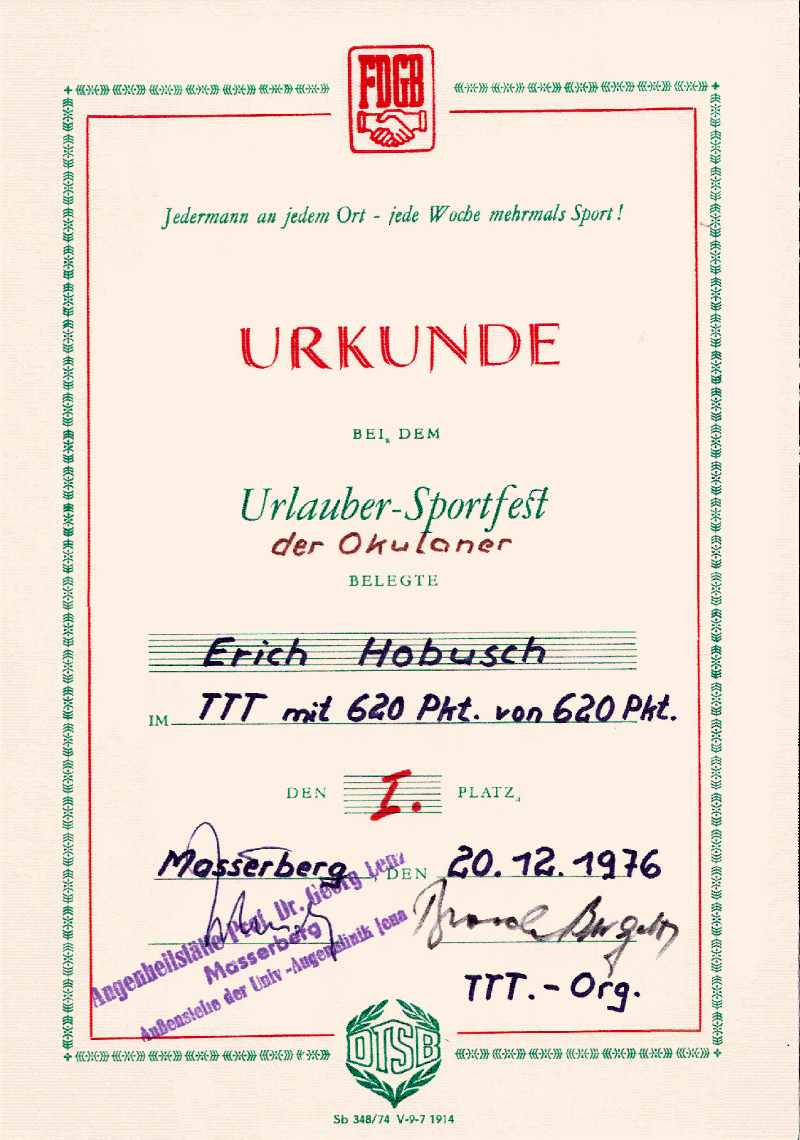 FDGB
Jedermann an jedem Ort - jede Woche mehrmals Sport!
URKUNDE
BEI DEM
Urlauber-Sportfest
der Okulaner
BELEGTE
Erich Hobusch
IM TTT mit 620 Pkt. von 620 Pkt.
DEN I. PLATZ
Masserberg, DEN 20.12.1976
Augenheilstätte Prof. Dr. Georg Lenz
Masserberg
Außenstelle der Univ.-Augenklinik Jena
TTT.-Org.
DTSB
Sb 348/74 V-9-7 1914